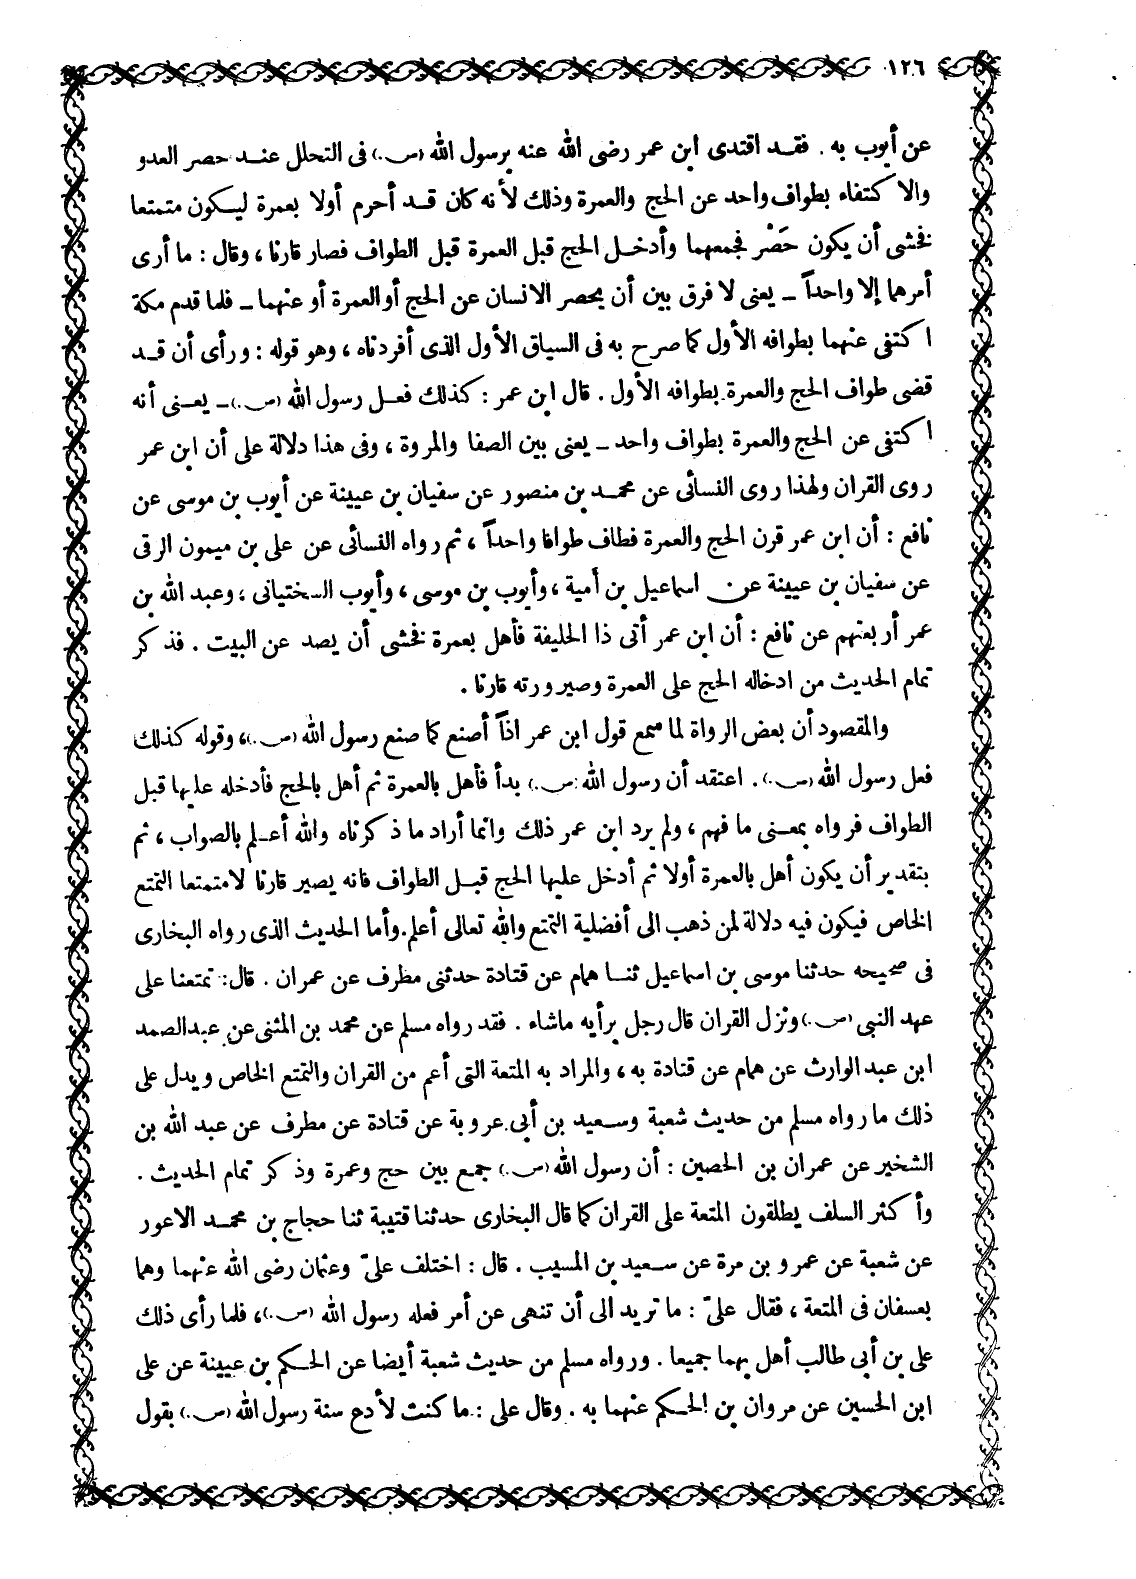 ١٢٦
عن أيوب به . فقد اقتدى ابن عمر رضى الله عنه برسول الله (س.) فى التحلل عند حصر العدو
والاكتفاء بطواف واحد عن الحج والعمرة وذلك لأنه كان قد أحرم أولا بعمرة ليكون متمتعا
فخشى أن يكون حَصْر فجمعهما وأدخل الحج قبل العمرة قبل الطواف فصار قارنا ، وقال : ما أرى
أمرهما إلا واحداً ــ يعنى لا فرق بين أن يحصر الانسان عن الحج أو العمرة أو عنهما ــ فلما قدم مكة
اكتفى عنهما بطوافه الأول كما صرح به فى السياق الأول الذى أفردناه ، وهو قوله : ورأى أن قد
قضى طواف الحج والعمرة بطوافه الأول . قال ابن عمر : كذلك فعل رسول الله (س.) ــ يعنى أنه
اكتفى عن الحج والعمرة بطواف واحد ــ يعنى بين الصفا والمروة ، وفى هذا دلالة على أن ابن عمر
روى القران ولهذا روى النسائى عن محمد بن منصور عن سفيان بن عيينة عن أيوب بن موسى عن
نافع : أن ابن عمر قرن الحج والعمرة فطاف طوافا واحداً ، ثم رواه النسائى عن على بن ميمون الرقى
عن سفيان بن عيينة عن اسماعيل بن أمية ، وأيوب بن موسى ، وأيوب السختيانى ، وعبد الله بن
عمر أربعتهم عن نافع : أن ابن عمر أتى ذا الحليفة فأهل بعمرة فخشى أن يصد عن البيت . فذكر
تمام الحديث من ادخاله الحج على العمرة وصيرورته قارنا .
والمقصود أن بعض الرواة لما سمع قول ابن عمر اذاً أصنع كما صنع رسول الله (س.)، وقوله كذلك
فعل رسول الله (س.) . اعتقد أن رسول الله (س.) بدأ فأهل بالعمرة ثم أهل بالحج فأدخله عليها قبل
الطواف فرواه بمعنى ما فهم ، ولم يرد ابن عمر ذلك وانما أراد ما ذكرناه والله أعلم بالصواب ، ثم
بتقدير أن يكون أهل بالعمرة أولا ثم أدخل عليها الحج قبل الطواف فانه يصير قارنا لا متمتعا التمتع
الخاص فيكون فيه دلالة لمن ذهب الى أفضلية التمتع والله تعالى أعلم. وأما الحديث الذى رواه البخارى
فى صحيحه حدثنا موسى بن اسماعيل ثنا همام عن قتادة حدثنى مطرف عن عمران . قال : تمتعنا على
عهد النبى (س.) ونزل القران قال رجل برأيه ماشاء . فقد رواه مسلم عن محمد بن المثنى عن عبدالصمد
ابن عبد الوارث عن همام عن قتادة به ، والمراد به المتعة التى أعم من القران والتمتع الخاص ويدل على
ذلك ما رواه مسلم من حديث شعبة وسعيد بن أبى عروبة عن قتادة عن مطرف عن عبد الله بن
الشخير عن عمران بن الحصين : أن رسول الله (س.) جمع بين حج وعمرة وذكر تمام الحديث .
وأكثر السلف يطلقون المتعة على القران كما قال البخارى حدثنا قتيبة ثنا حجاج بن محمد الاعور
عن شعبة عن عمرو بن مرة عن سعيد بن المسيب . قال : اختلف علىّ وعثمان رضى الله عنهما وهما
بعسفان فى المتعة ، فقال علىّ : ما تريد الى أن تنهى عن أمر فعله رسول الله (س.)، فلما رأى ذلك
على بن أبى طالب أهل بهما جميعا . ورواه مسلم من حديث شعبة أيضا عن الحكم بن عيينة عن على
ابن الحسين عن مروان بن الحكم عنهما به . وقال على : ما كنت لأدع سنة رسول الله (س.) بقول